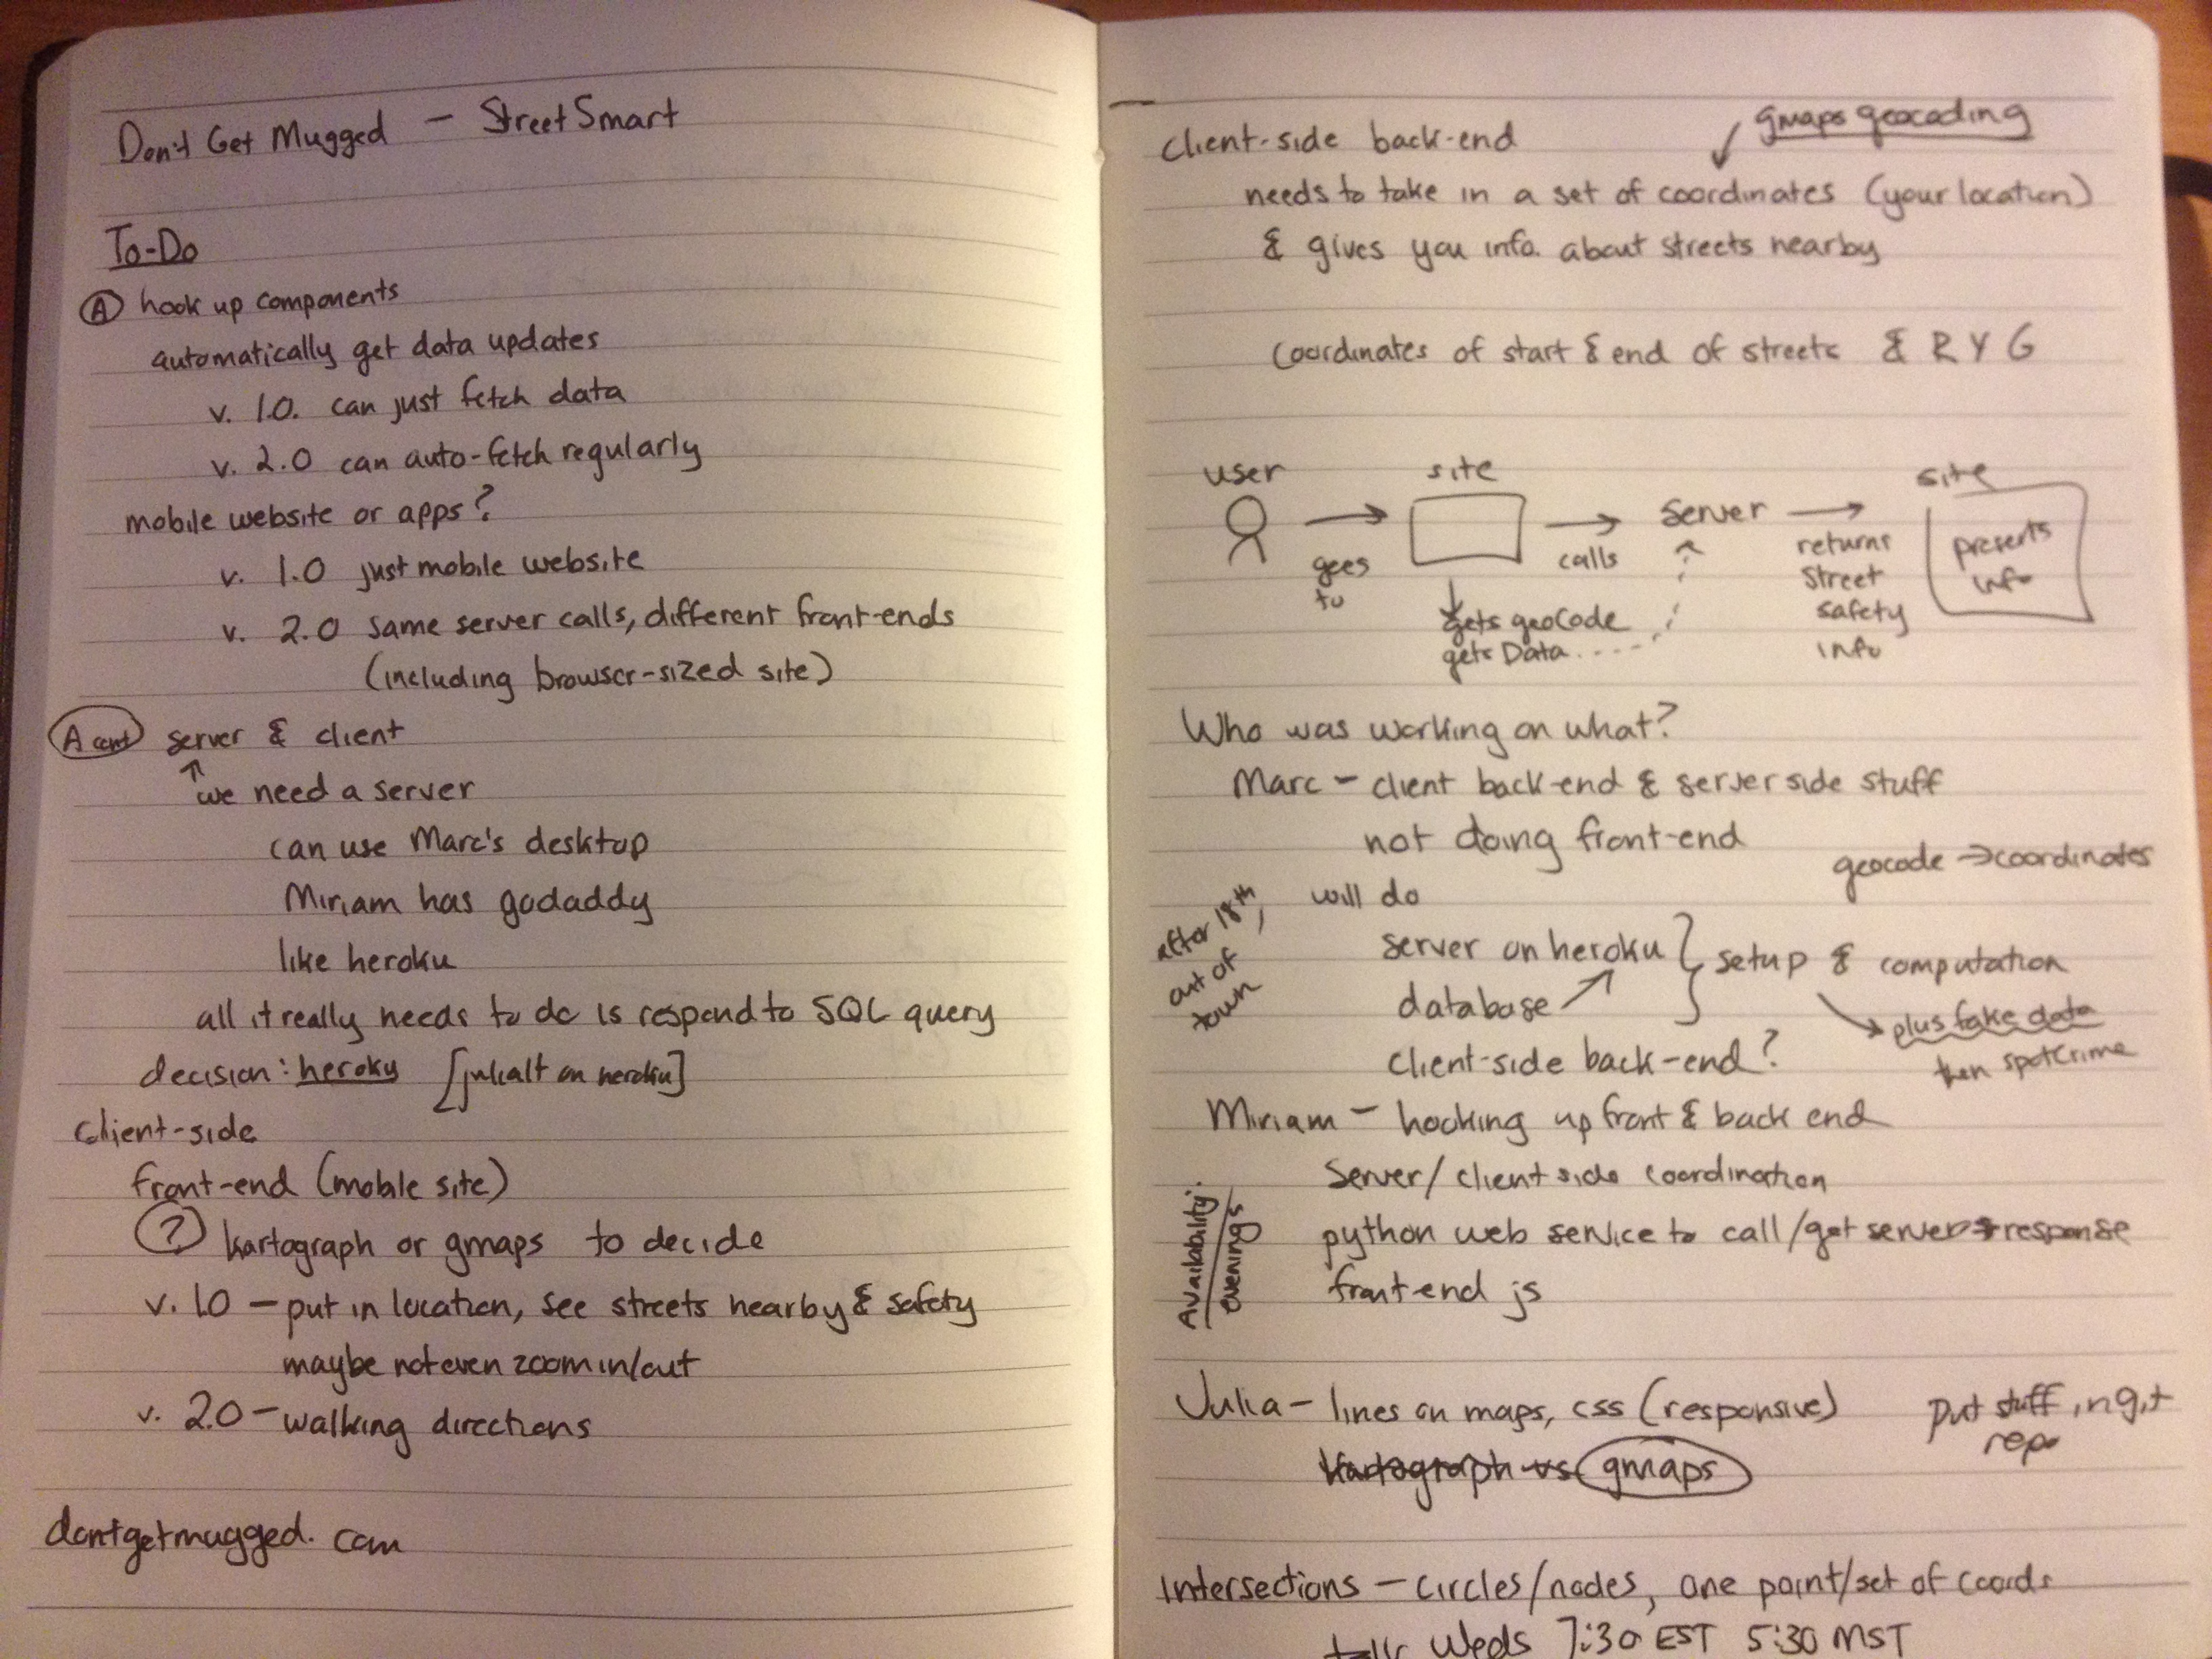 Don't Get Mugged — StreetSmart
To-Do
A hook up components
automatically get data updates
v. 1.0. can just fetch data
v. 2.0 can auto-fetch regularly
mobile website or apps?
v. 1.0 just mobile website
v. 2.0 same server calls, different front-ends
(including browser-sized site)
A cont server & client
↑ we need a server
can use Marc's desktop
Miriam has godaddy
like heroku
all it really needs to do is respond to SQL query
decision: heroku [juliaalt on heroku]
client-side
front-end (mobile site)
? kartograph or gmaps to decide
v. 1.0 — put in location, see streets nearby & safety
maybe not even zoom in/out
v. 2.0 — walking directions
dontgetmugged.com
gmaps geocoding
client-side back-end
needs to take in a set of coordinates (your location)
& gives you info. about streets nearby
coordinates of start & end of streets & R Y G
user → site → server → site
goes to
calls
returns street safety info
presents info
gets geocode
gets Data....
Who was working on what?
Marc — client back-end & server side stuff
not doing front-end
geocode → coordinates
after 18th, out of town
will do
server on heroku } setup & computation
database ↗
→ plus fake data
then spotcrime
client-side back-end?
Miriam — hooking up front & back end
Server/client side coordination
Availability: evenings
python web service to call/get server response
front-end js
Julia — lines on maps, css (responsive)
put stuff in git
repo
kartograph vs gmaps
intersections — circles/nodes, one point/set of coords
talk Weds 7:30 EST 5:30 MST